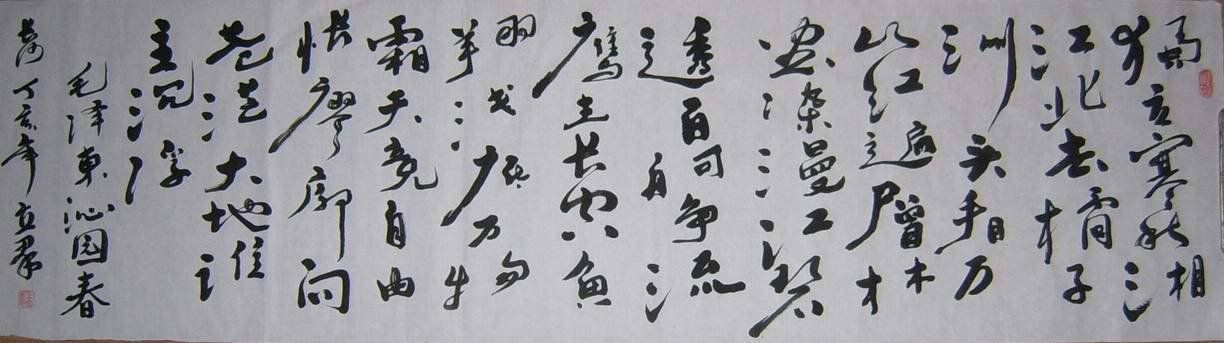 獨立寒秋湘
江北去橘子
洲头看万
山红遍層林
尽染漫江碧
透百舸争流
鹰击长空鱼
翔浅底万类
霜天竞自由
怅廖廓问
苍茫大地谁
主沉浮
毛泽东沁园春
长沙 丁亥年